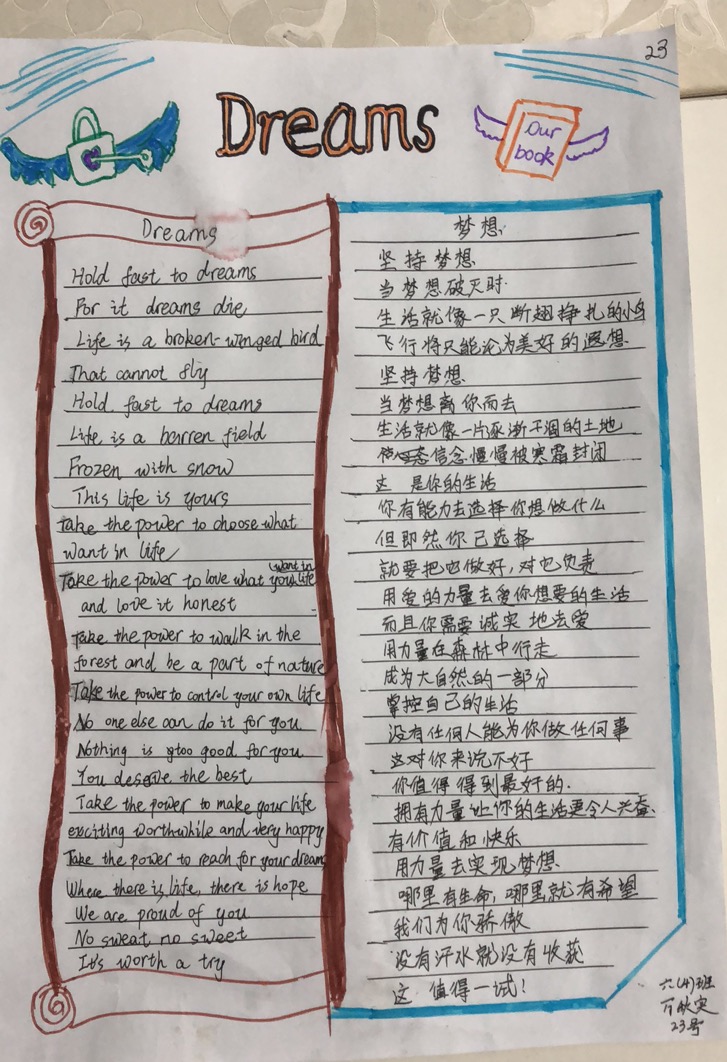 23
Dreams
Our
book
Dreams
Hold fast to dreams
For it dreams die
Life is a broken-winged bird
That cannot fly
Hold fast to dreams
Life is a barren field
Frozen with snow
This life is yours
Take the power to choose what
want in life
Take the power to love what your life
want in
and love it honest
Take the power to walk in the
forest and be a part of nature
Take the power to control your own life
No one else can do it for you
Nothing is too good for you
You deserve the best
Take the power to make your life
exciting worthwhile and very happy
Take the power to reach for your dream
Where there is life, there is hope
We are proud of you
No sweat no sweet
It's worth a try
梦想
坚持梦想
当梦想破灭时
生活就像一只断翅挣扎的小鸟
飞行将只能沦为美好的遐想
坚持梦想
当梦想离你而去
生活就像一片逐渐干涸的土地
信念慢慢被寒霜封闭
这 是你的生活
你有能力去选择你想做什么
但即然你已选择
就要把它做好,对它负责
用爱的力量去爱你想要的生活
而且你需要诚实地去爱
用力量在森林中行走
成为大自然的一部分
掌控自己的生活
没有任何人能为你做任何事
这对你来说不好
你值得得到最好的.
拥有力量让你的生活更令人兴奋.
有价值和快乐
用力量去实现梦想
哪里有生命,哪里就有希望
我们为你骄傲
没有汗水就没有收获
这 值得一试!
六(4)班
23号